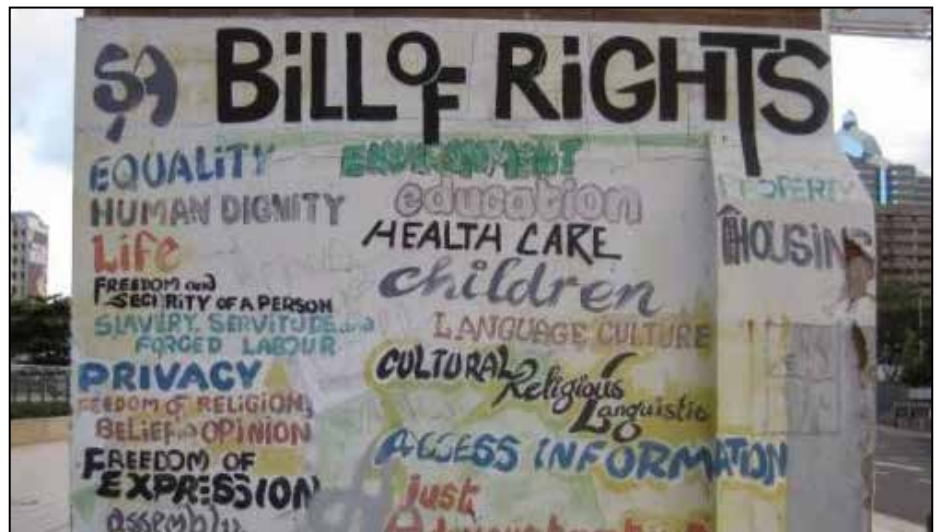 SA BILL OF RIGHTS
EQUALITY
HUMAN DIGNITY
Life
FREEDOM and
SECURITY OF A PERSON
SLAVERY, SERVITUDE and
FORCED LABOUR
PRIVACY
FREEDOM OF RELIGION,
BELIEF & OPINION
FREEDOM OF
EXPRESSION
assembly
ENVIRONMENT
education
HEALTH CARE
children
LANGUAGE CULTURE
CULTURAL Religious
Linguistic
ACCESS INFORMATION
just
Administrative
PROPERTY
HOUSING